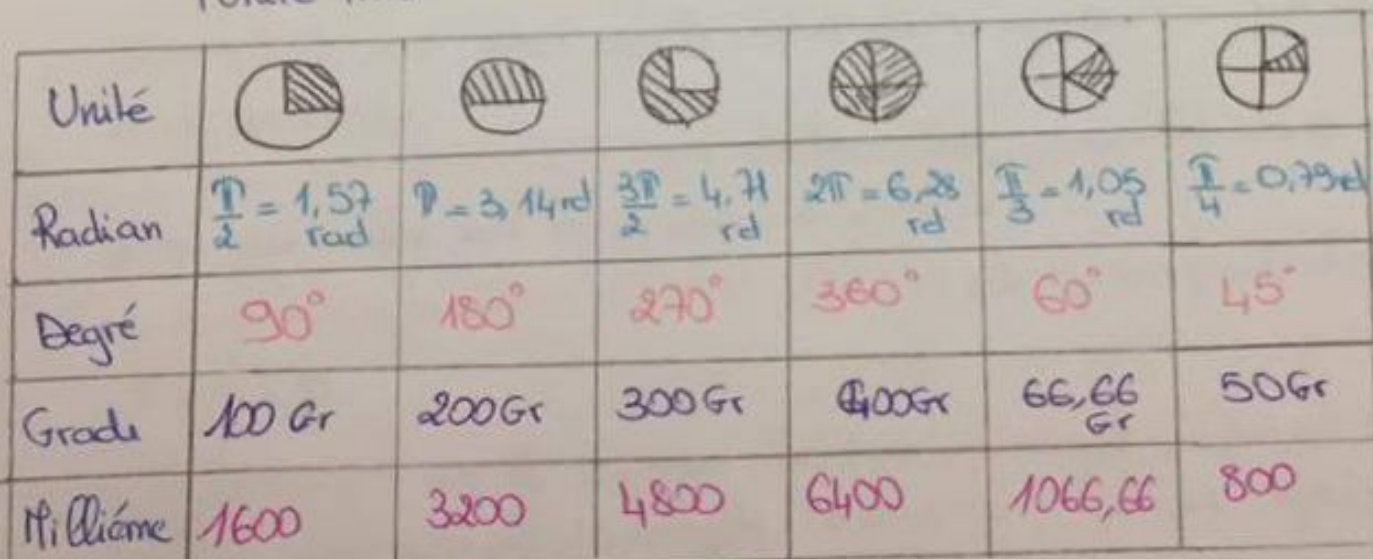 Unité
Radian π/2 = 1,57 rad π = 3,14 rd 3π/2 = 4,71 rd 2π = 6,28 rd π/3 = 1,05 rd π/4 = 0,79 rd
Degré 90° 180° 270° 360° 60° 45°
Grade 100 Gr 200 Gr 300 Gr 400 Gr 66,66 Gr 50 Gr
Milliéme 1600 3200 4800 6400 1066,66 800